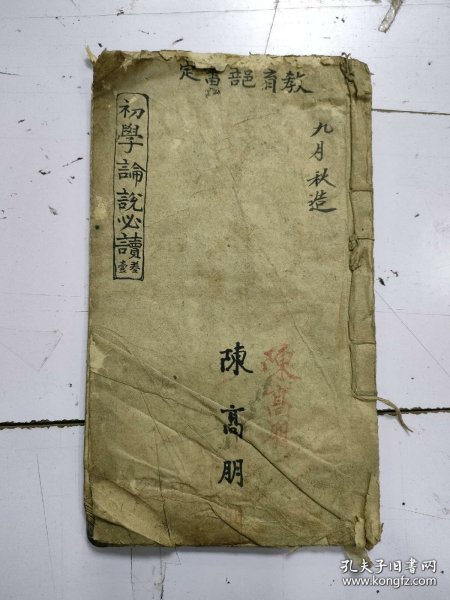 教育部審定
九月秋造
初學論說必讀
卷壹
陳高朋
陳高朋
孔夫子旧书网
www.kongfz.com